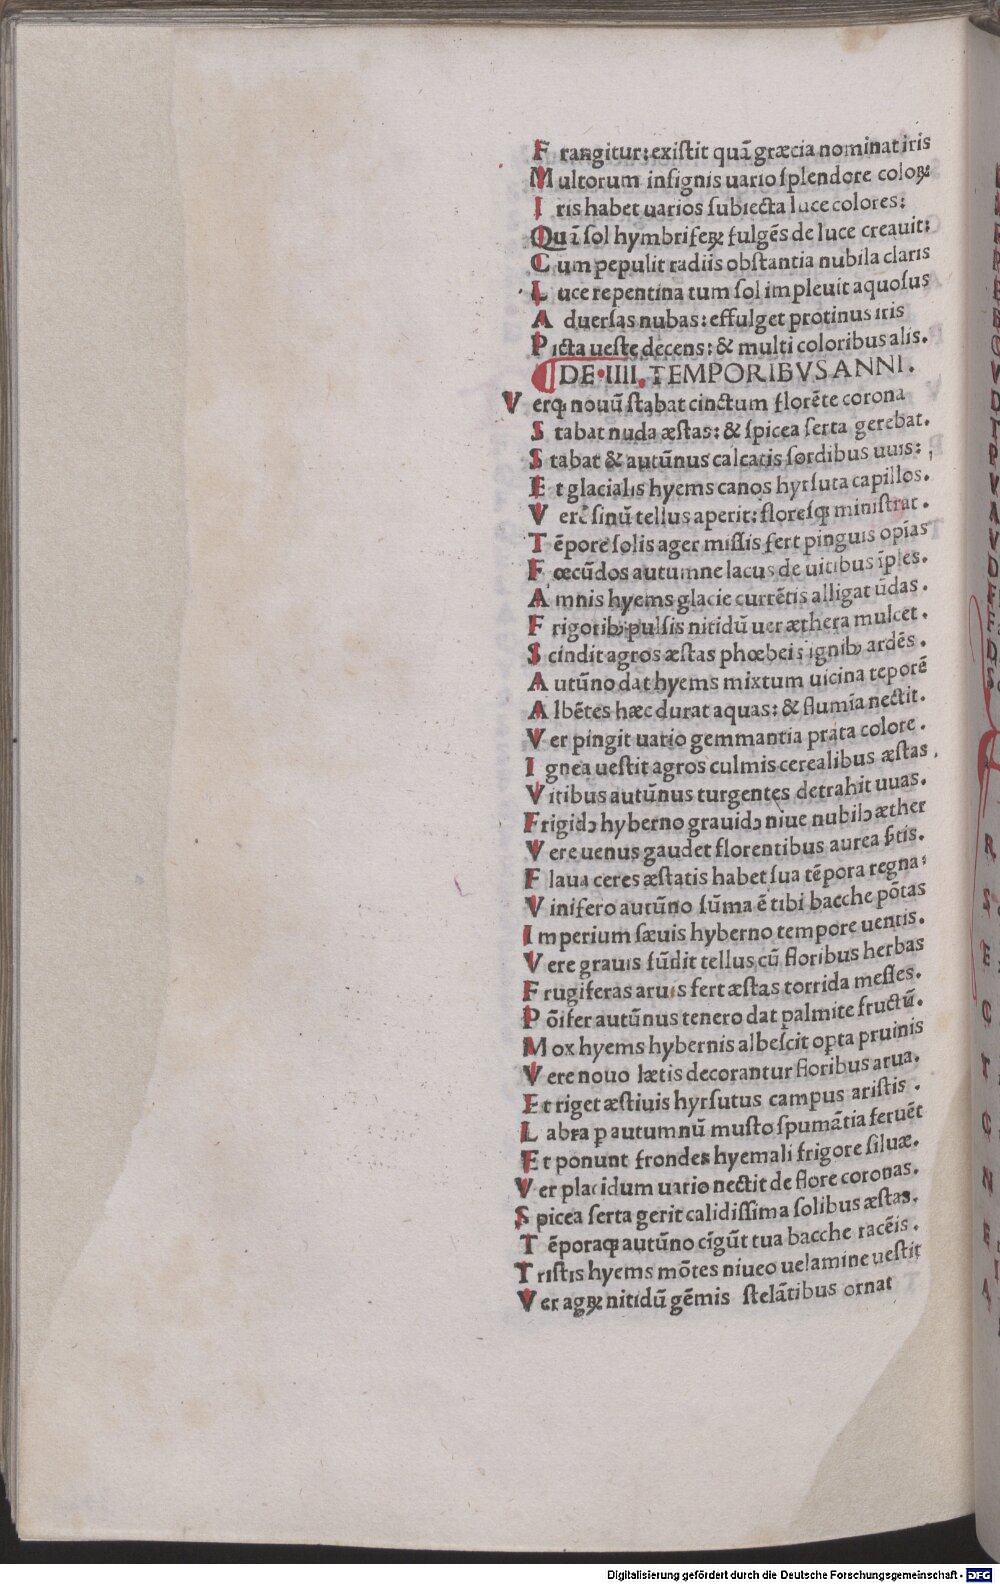 F rangitur: exiſtit quā græcia nominat iris
M ultorum inſignis uario ſplendore coloꝝ:
I ris habet uarios ſubiecta luce colores:
Quā ſol hymbriferꝝ fulgēs de luce creauit:
C um pepulit radiis obſtantia nubila claris
L uce repentina tum ſol impleuit aquoſus
A duerſas nubas: effulget protinus iris
P icta ueſte decens: & multi coloribus alis.
DE·IIII. TEMPORIBVS ANNI.
V erqꝫ nouū ſtabat cinctum florēte corona
S tabat nuda æſtas: & ſpicea ſerta gerebat.
S tabat & autūnus calcatis ſordibus uuis:
E t glacialis hyems canos hyrſuta capillos.
V erē ſinū tellus aperit: floreſqꝫ miniſtrat.
T ēpore ſolis ager miſſis fert pinguis opīas
F œcūdos autumne lacus de uitibus īples.
A mnis hyems glacie currētis alligat ūdas.
F rigoribꝫ pulſis nitidū uer æthera mulcet.
S cindit agros æſtas phœbeis ignibꝫ ardēs.
A utūno dat hyems mixtum uicina teporē
A lbētes hæc durat aquas: & flumīa nectit.
V er pingit uario gemmantia prata colore.
I gnea ueſtit agros culmis cerealibus æſtas.
V itibus autūnus turgentes detrahit uuas.
F rigidꝰ hyberno grauidꝰ niue nubilꝰ æther
V ere uenus gaudet florentibus aurea ſ̄tis.
F laua ceres æſtatis habet ſua tēpora regna:
V inifero autūno ſūma ē tibi bacche pōtas
I mperium ſæuis hyberno tempore uentis.
V ere grauis fūdit tellus cū floribus herbas
F rugiferas aruis fert æſtas torrida meſſes.
P ōifer autūnus tenero dat palmite fructū.
M ox hyems hybernis albeſcit opta pruinis
V ere nouo lætis decorantur floribus arua.
E t riget æſtiuis hyrſutus campus ariſtis.
L abra p autumnū muſto ſpumātia feruēt
E t ponunt frondes hyemali frigore ſiluæ.
V er placidum uario nectit de flore coronas.
S picea ſerta gerit calidiſſima ſolibus æſtas.
T ēporaqꝫ autūno cīgūt tua bacche racēis.
T riſtis hyems mōtes niueo uelamine ueſtit
V er agꝝ nitidū gēmis ſtelātibus ornat
Digitalisierung gefördert durch die Deutsche Forschungsgemeinschaft - DFG